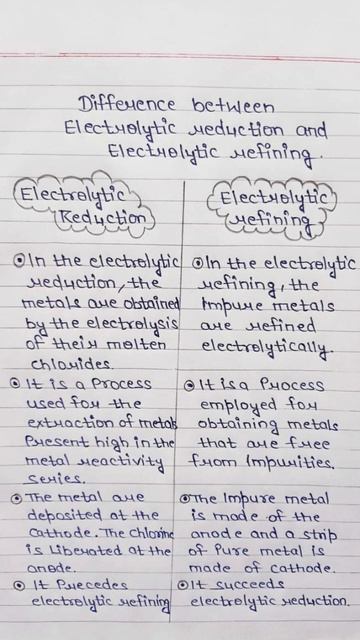 Difference between
Electrolytic reduction and
Electrolytic refining.
Electrolytic
Reduction
In the electrolytic
reduction, the
metals are obtained
by the electrolysis
of their molten
chlorides.
It is a Process
used for the
extraction of metals
Present high in the
metal reactivity
series.
The metal are
deposited at the
cathode. The Chlorine
is Liberated at the
anode.
It Precedes
electrolytic refining
Electrolytic
refining
In the electrolytic
refining, the
Impure metals
are refined
electrolytically.
It is a Process
employed for
obtaining metals
that are free
from Impurities.
The Impure metal
is made of the
anode and a strip
of Pure metal is
made of cathode.
It succeeds
electrolytic reduction.